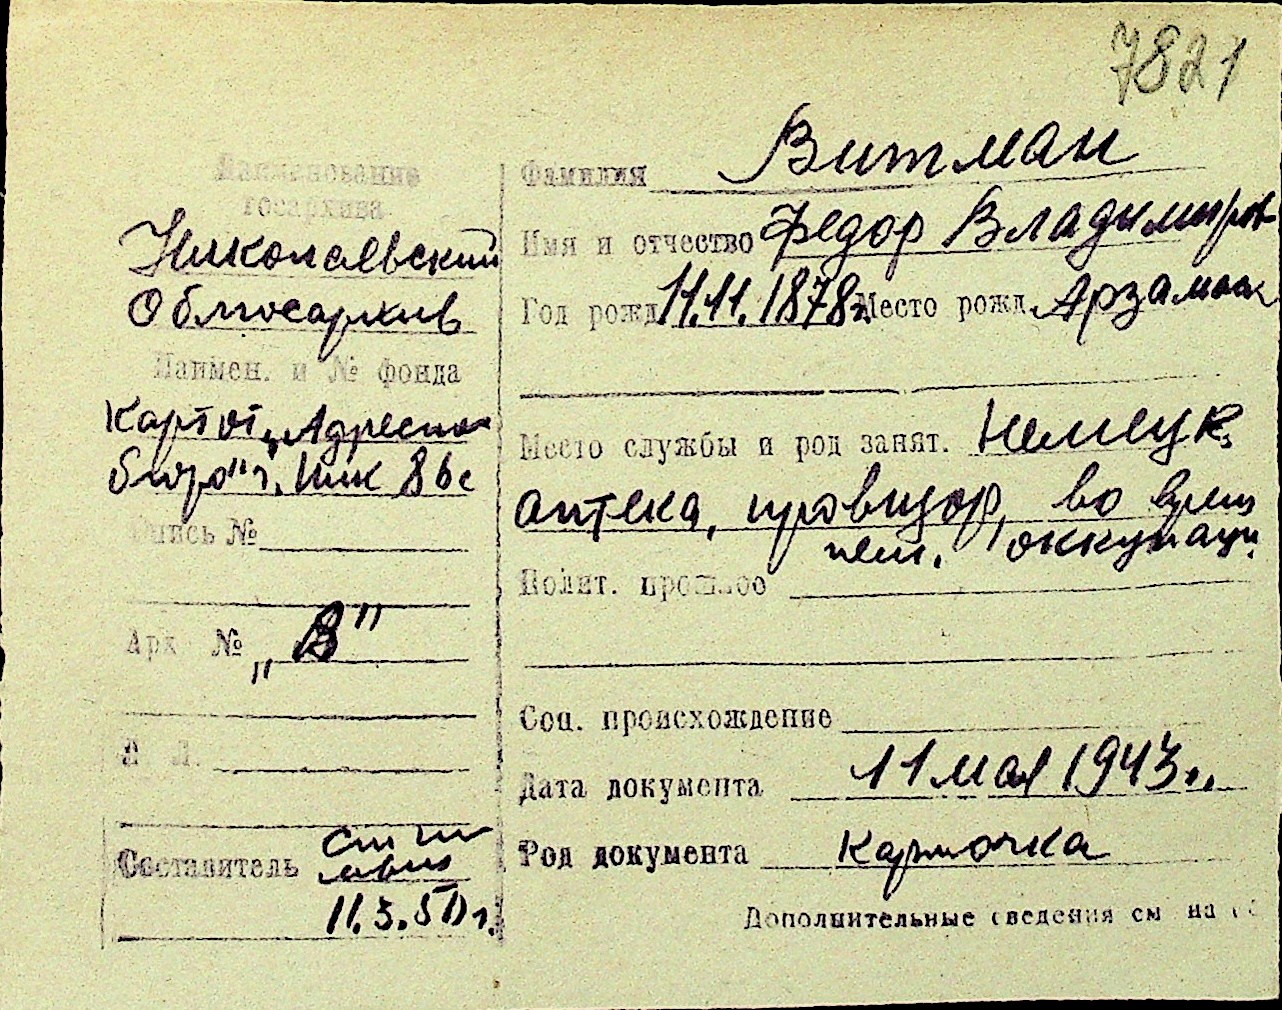 7821
Наименование
госархива
Николаевский
Облгосархив
Наимен. и № фонда
Картот. „Адресное
бюро" г. Ник
Опись №
Арх №
„В"
Л.
Составитель
11.3.50 г.
Фамилия Витман
Имя и отчество Федор Владимиров
Год рожд 11.11.1878г Место рожд. Арзамас
Место службы и род занят. Немецк.
аптека, провизор, во время
нем. оккупаци
Полит. прошлое
Соц. происхождение
Дата документа 11 мая 1943 г.
Род документа Карточка
Дополнительные сведения см на об